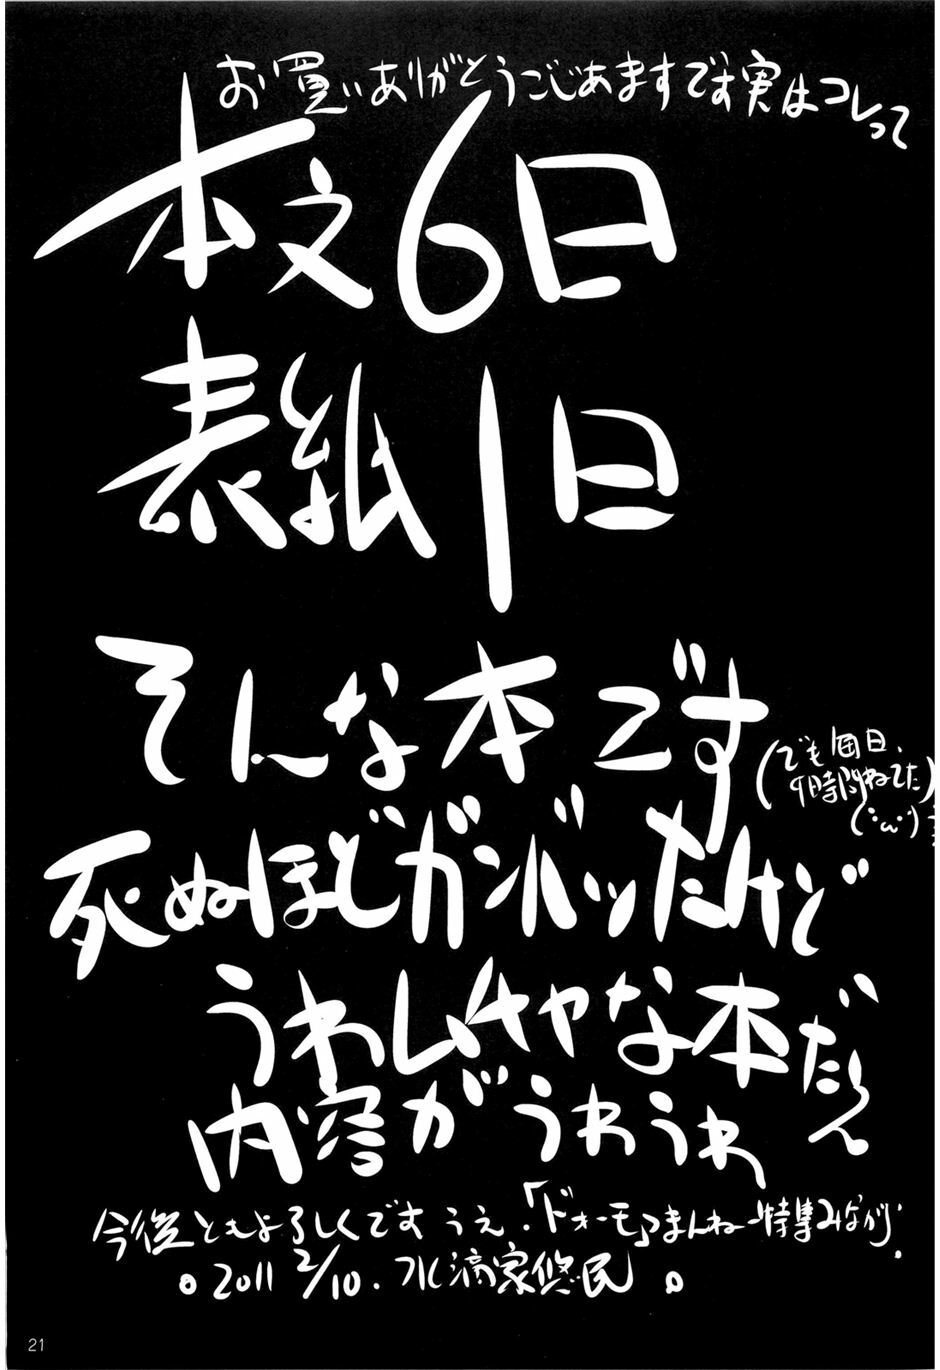 お買いありがとうごじあますです実はコレって
本文6日
表紙1日
そんな本です
(でも毎日、
9時間ねてた)
(´･ω･`)
死ぬほどガンバッたけど
うわムチャな本だ〜
内容がうわうわ
今後ともよろしくです うえ.「ドォーモ」まんねー特集みながら.
。2011 2/10. 水滴家悠民。
21